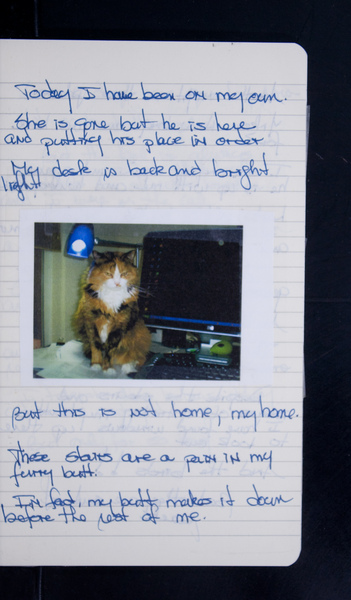 Today I have been on my own.
She is gone but he is here
and putting his place in order
My desk is back and bright
light
But this is not home, my home.
These stairs are a pain in my
furry butt.
In fact, my butt makes it down
before the rest of me.